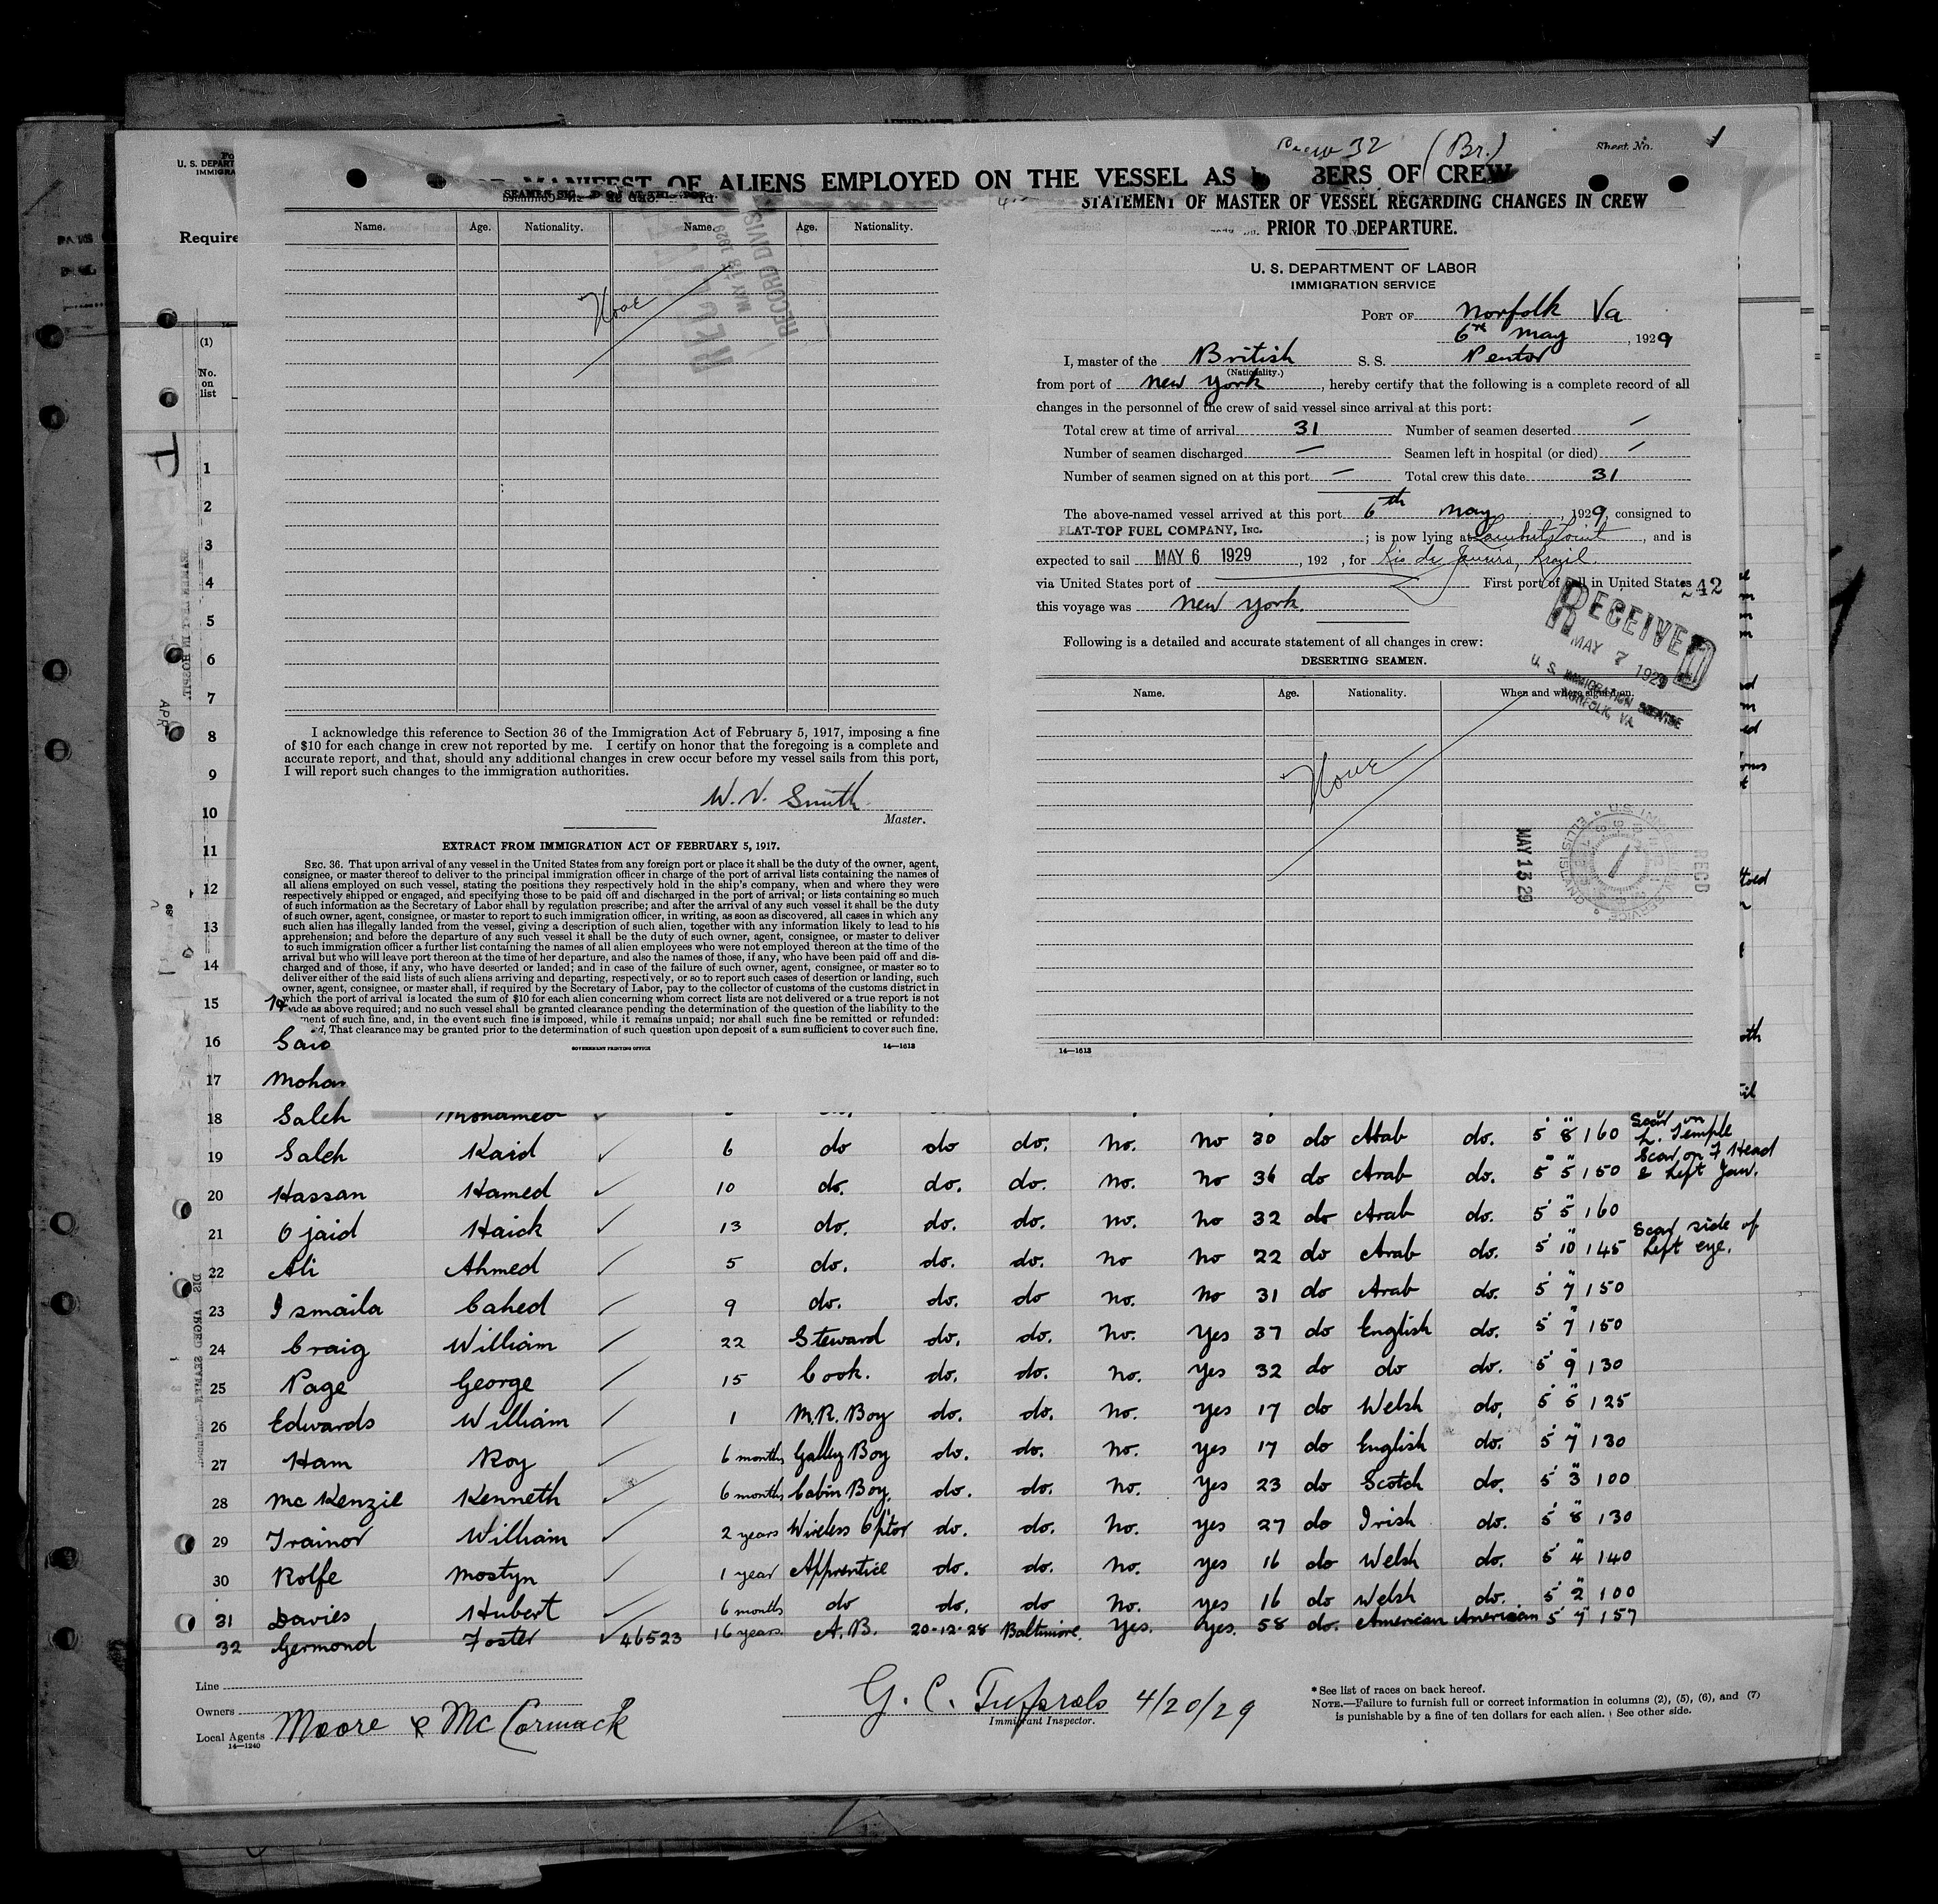 Crew 32 (Br.) Sheet No. 1
MANIFEST OF ALIENS EMPLOYED ON THE VESSEL AS BERS OF CREW
U. S. DEPART
IMMIGRA
Require
(1)
No.
on
list
1
2
3
4
5
6
7
8
9
10
11
12
13
14
15
16
17
Name. Age. Nationality. Name. Age. Nationality.
None
RECORD DIVIS
MAY 18 1929
I acknowledge this reference to Section 36 of the Immigration Act of February 5, 1917, imposing a fine
of $10 for each change in crew not reported by me. I certify on honor that the foregoing is a complete and
accurate report, and that, should any additional changes in crew occur before my vessel sails from this port,
I will report such changes to the immigration authorities.
W. V. Smith
Master.
EXTRACT FROM IMMIGRATION ACT OF FEBRUARY 5, 1917.
SEC. 36. That upon arrival of any vessel in the United States from any foreign port or place it shall be the duty of the owner, agent,
consignee, or master thereof to deliver to the principal immigration officer in charge of the port of arrival lists containing the names of
all aliens employed on such vessel, stating the positions they respectively hold in the ship's company, when and where they were
respectively shipped or engaged, and specifying those to be paid off and discharged in the port of arrival; or lists containing so much
of such information as the Secretary of Labor shall by regulation prescribe; and after the arrival of any such vessel it shall be the duty
of such owner, agent, consignee, or master to report to such immigration officer, in writing, as soon as discovered, all cases in which any
such alien has illegally landed from the vessel, giving a description of such alien, together with any information likely to lead to his
apprehension; and before the departure of any such vessel it shall be the duty of such owner, agent, consignee, or master to deliver
to such immigration officer a further list containing the names of all alien employees who were not employed thereon at the time of the
arrival but who will leave port thereon at the time of her departure, and also the names of those, if any, who have been paid off and dis-
charged and of those, if any, who have deserted or landed; and in case of the failure of such owner, agent, consignee, or master so to
deliver either of the said lists of such aliens arriving and departing, respectively, or so to report such cases of desertion or landing, such
owner, agent, consignee, or master shall, if required by the Secretary of Labor, pay to the collector of customs of the customs district in
which the port of arrival is located the sum of $10 for each alien concerning whom correct lists are not delivered or a true report is not
ade as above required; and no such vessel shall be granted clearance pending the determination of the question of the liability to the
ment of such fine, and, in the event such fine is imposed, while it remains unpaid; nor shall such fine be remitted or refunded:
d, That clearance may be granted prior to the determination of such question upon deposit of a sum sufficient to cover such fine.
GOVERNMENT PRINTING OFFICE 14—1613
STATEMENT OF MASTER OF VESSEL REGARDING CHANGES IN CREW
PRIOR TO DEPARTURE.
U. S. DEPARTMENT OF LABOR
IMMIGRATION SERVICE
PORT OF Norfolk Va
6th May, 1929
I, master of the British S. S. Pentor
(Nationality.)
from port of New York, hereby certify that the following is a complete record of all
changes in the personnel of the crew of said vessel since arrival at this port:
Total crew at time of arrival 31 Number of seamen deserted —
Number of seamen discharged — Seamen left in hospital (or died) —
Number of seamen signed on at this port — Total crew this date 31
The above-named vessel arrived at this port 6th May, 1929, consigned to
FLAT-TOP FUEL COMPANY, INC.; is now lying at Lamberts Point, and is
expected to sail MAY 6 1929, 192 , for Rio de Janeiro, Brazil.
via United States port of First port of call in United States
this voyage was New York.
42
RECEIVED
MAY 7 1929
U. S. IMMIGRATION SERVICE
NORFOLK, VA
Following is a detailed and accurate statement of all changes in crew:
DESERTING SEAMEN.
Name. Age. Nationality. When and where signed on.
None
MAY 13 29
RECD
14—1613
Said
Moham
18 Saleh Mohamed
19 Saleh Kaid 6 do do do. no. no 30 do Arab do. 5' 8" 160 Scar on L. Temple
20 Hassan Hamed 10 do. do. do. no. no 36 do Arab do. 5' 5" 150 Scar on F Head & Left Jaw.
21 Ojaid Haick 13 do. do. do. no. no 32 do Arab do. 5' 5" 160
22 Ali Ahmed 5 do. do. do. no no 22 do Arab do. 5' 10" 145 Scar side of Left eye.
23 Ismaila Cahed 9 do. do. do no. no 31 do Arab do. 5' 7" 150
24 Craig William 22 Steward do. do. no. Yes 37 do English do. 5' 7" 150
25 Page George 15 Cook. do. do. no. Yes 32 do do do. 5' 9" 130
26 Edwards William 1 M.R. Boy do. do. no. yes 17 do Welsh do. 5' 5" 125
27 Ham Roy 6 months Galley Boy do. do. no. yes 17 do English do. 5' 7" 130
28 McKenzie Kenneth 6 months Cabin Boy. do. do. no. yes 23 do Scotch do. 5' 3" 100
29 Trainor William 2 years Wireless Optor do. do. no. yes 27 do Irish do. 5' 8" 130
30 Rolfe Mostyn 1 year Apprentice do. do. no. yes 16 do Welsh do. 5' 4" 140
31 Davies Hubert 6 months do do. do. no. yes 16 do Welsh do. 5' 2" 100
32 Germond Foster 46523 16 years A.B. 20-12-28 Baltimore. Yes. Yes. 58 do. American American 5' 7" 157
Line
Owners
Local Agents Moore & McCormack
14—1240
G. C. 4/20/29
Immigrant Inspector.
*See list of races on back hereof.
NOTE.—Failure to furnish full or correct information in columns (2), (5), (6), and (7)
is punishable by a fine of ten dollars for each alien. See other side.